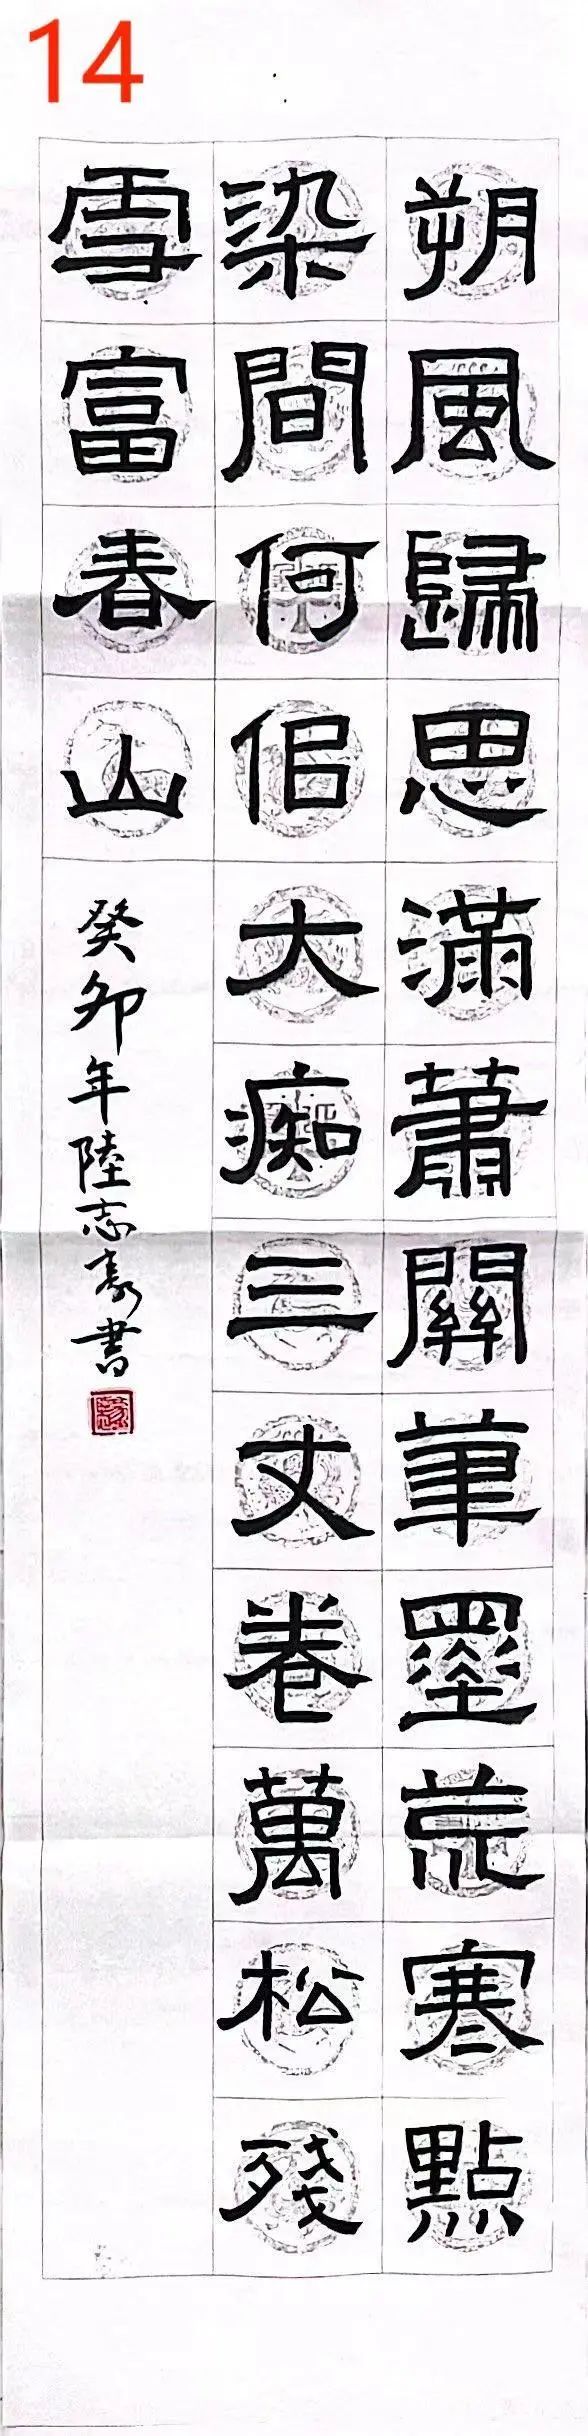 14
朔風歸思滿蕭關筆墨荒寒點
染間何佀大痴三丈卷萬松殘
雪富春山
癸卯年陸志豪書